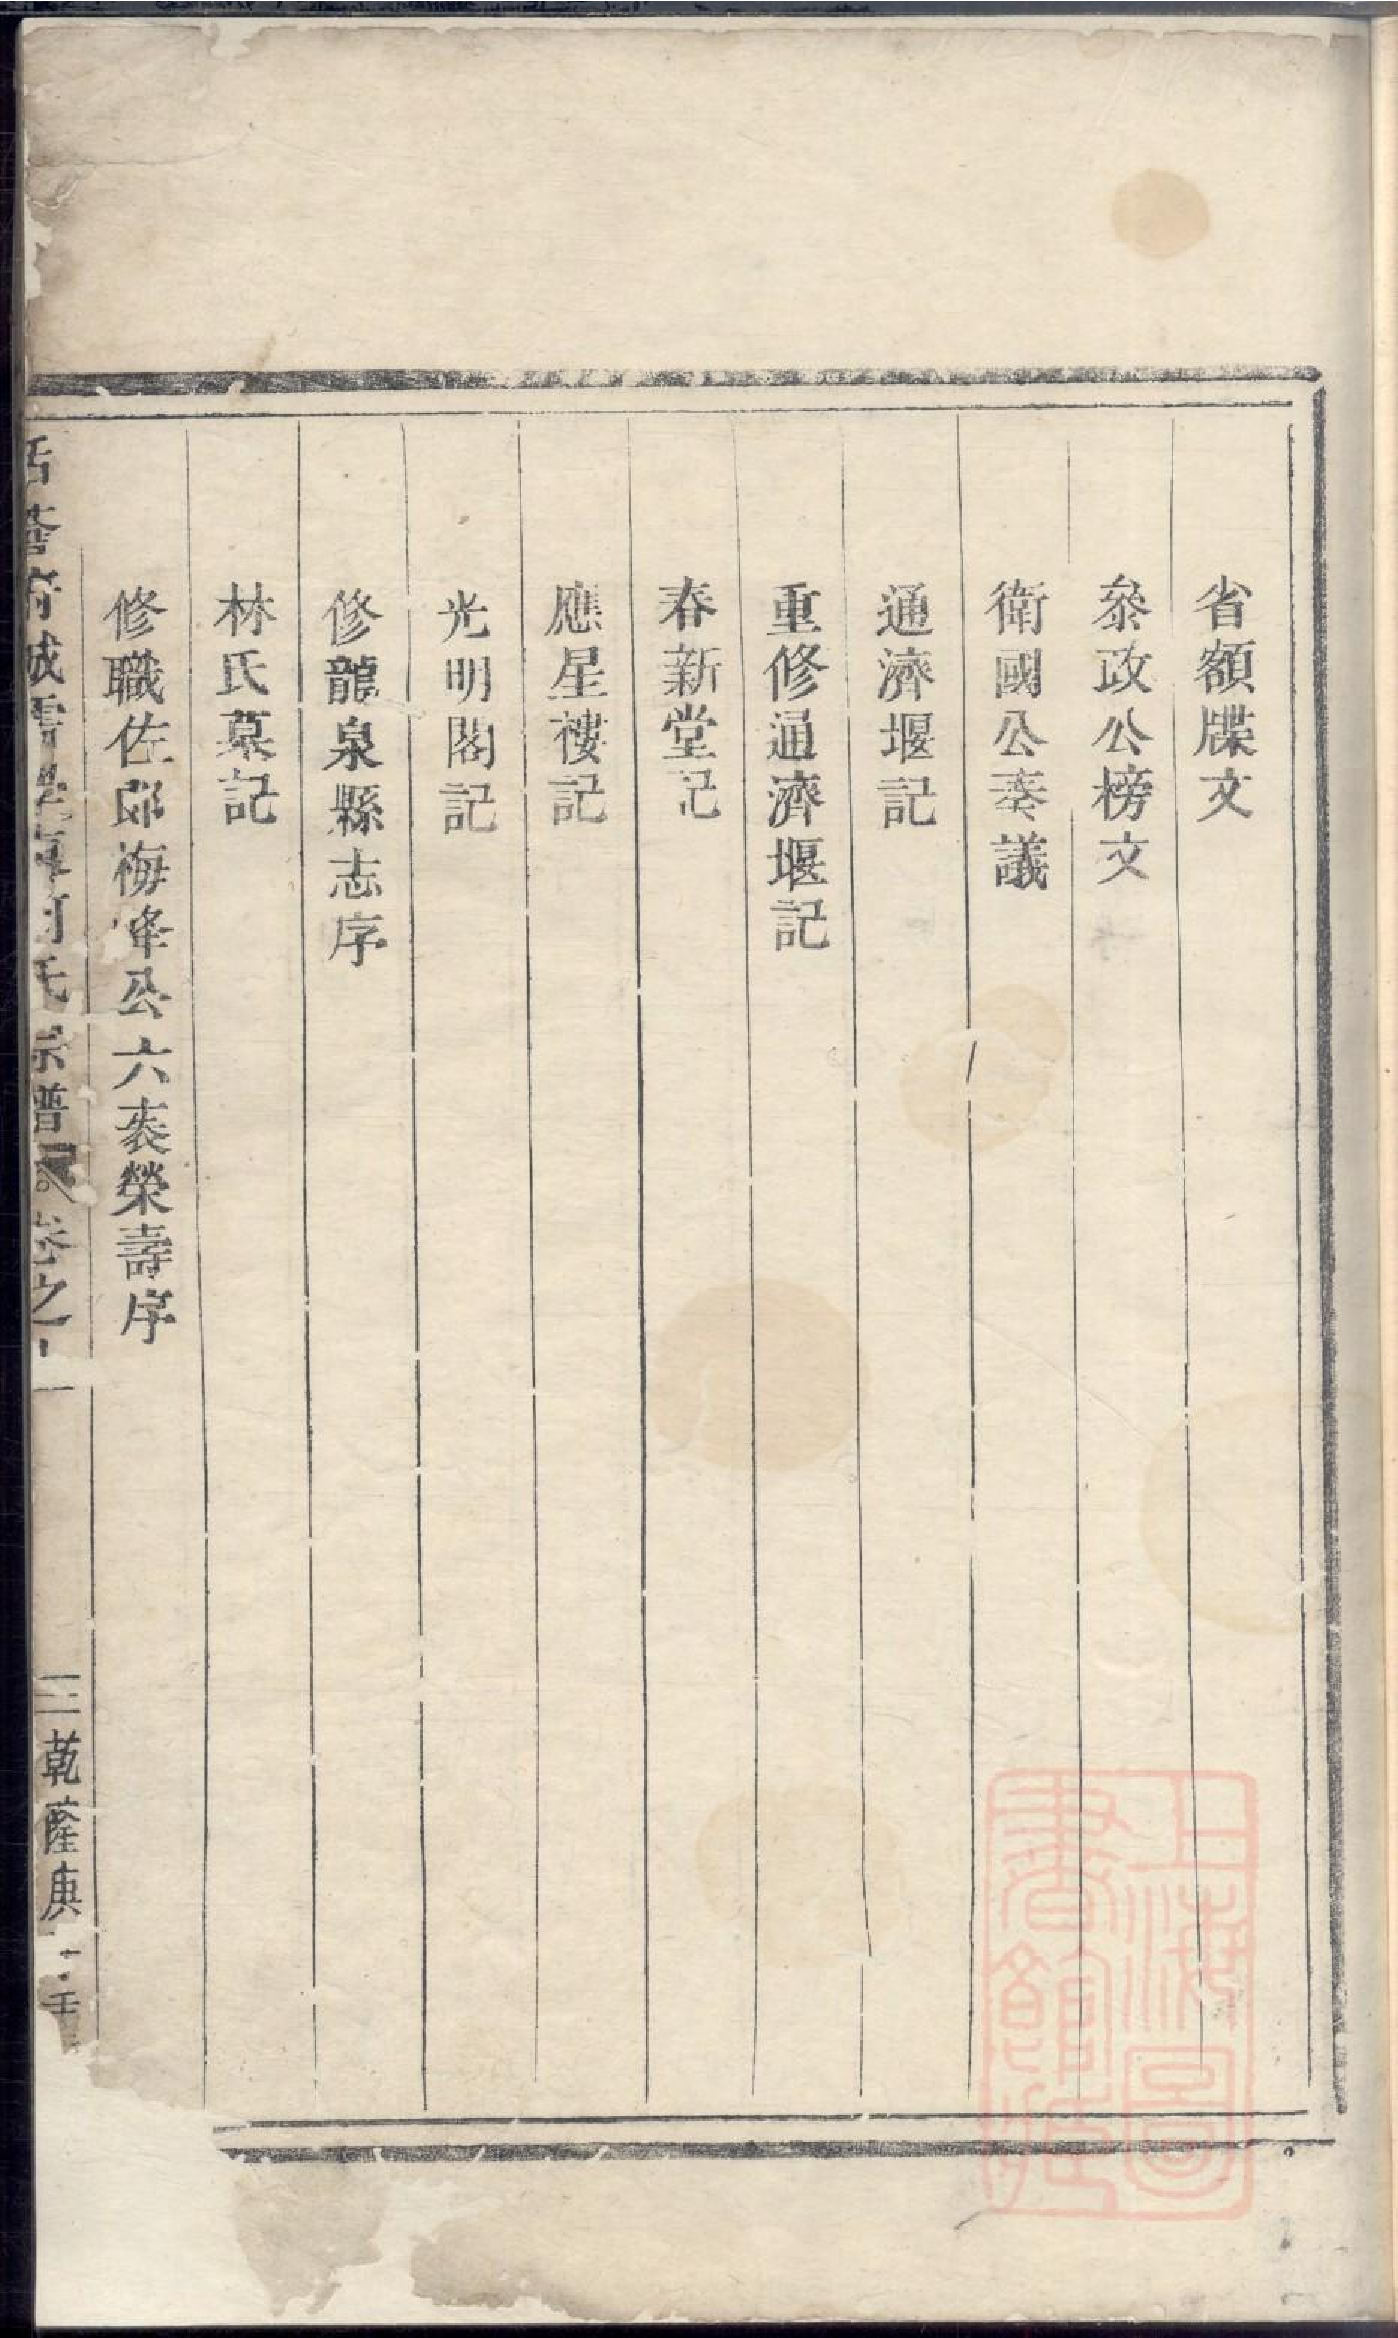 省額牒文
叅政公榜文
衛國公奏議
通濟堰記
重修通濟堰記
春新堂記
應星樓記
光明閣記
修龍泉縣志序
林氏墓記
修職佐郎梅峯公六裘榮壽序
氏宗譜
卷之
三乾隆庚
上海圖書館藏